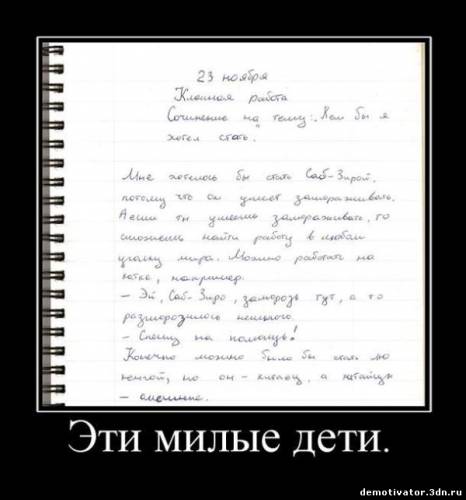 23 ноября
Классная работа
Сочинение на тему: "Кем бы я
хотел стать".
Мне хотелось бы стать Саб-Зирой,
потому что он умеет замораживать.
А если ты умеешь замораживать, то
сможешь найти работу в любом
уголку мира. Можно работать на
катке, например.
– Эй, Саб-Зиро, заморозь тут, а то
разморозилось немного.
– Спешу на помощь!
Конечно можно было бы стать Лю
Кенгой, но он – китаец, а китайцы
–
Эти милые дети.
demotivator.3dn.ru